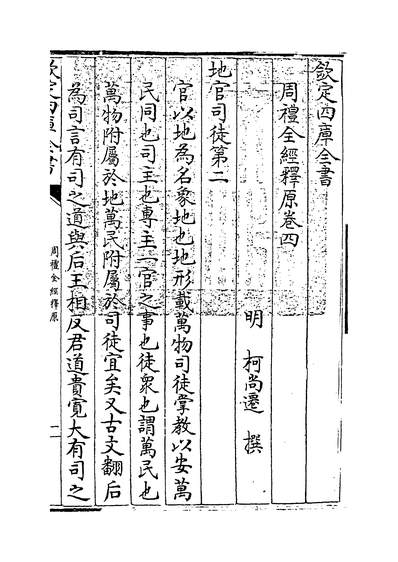 欽定四庫全書
周禮全經釋原卷四
明 柯尚遷 撰
地官司徒第二
官以地為名象地也地形載萬物司徒掌教以安萬
民同也司主也專主一官之事也徒衆也謂萬民也
萬物附屬於地萬民附屬於司徒宜矣又古文翻后
為司言有司之道與后王相反君道貴寛大有司之
欽定四庫全書
周禮全經釋原
一